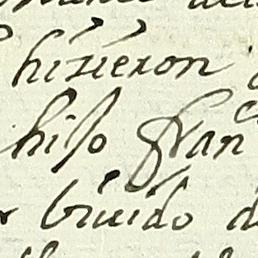 hizieron
hijo fran
biuido d